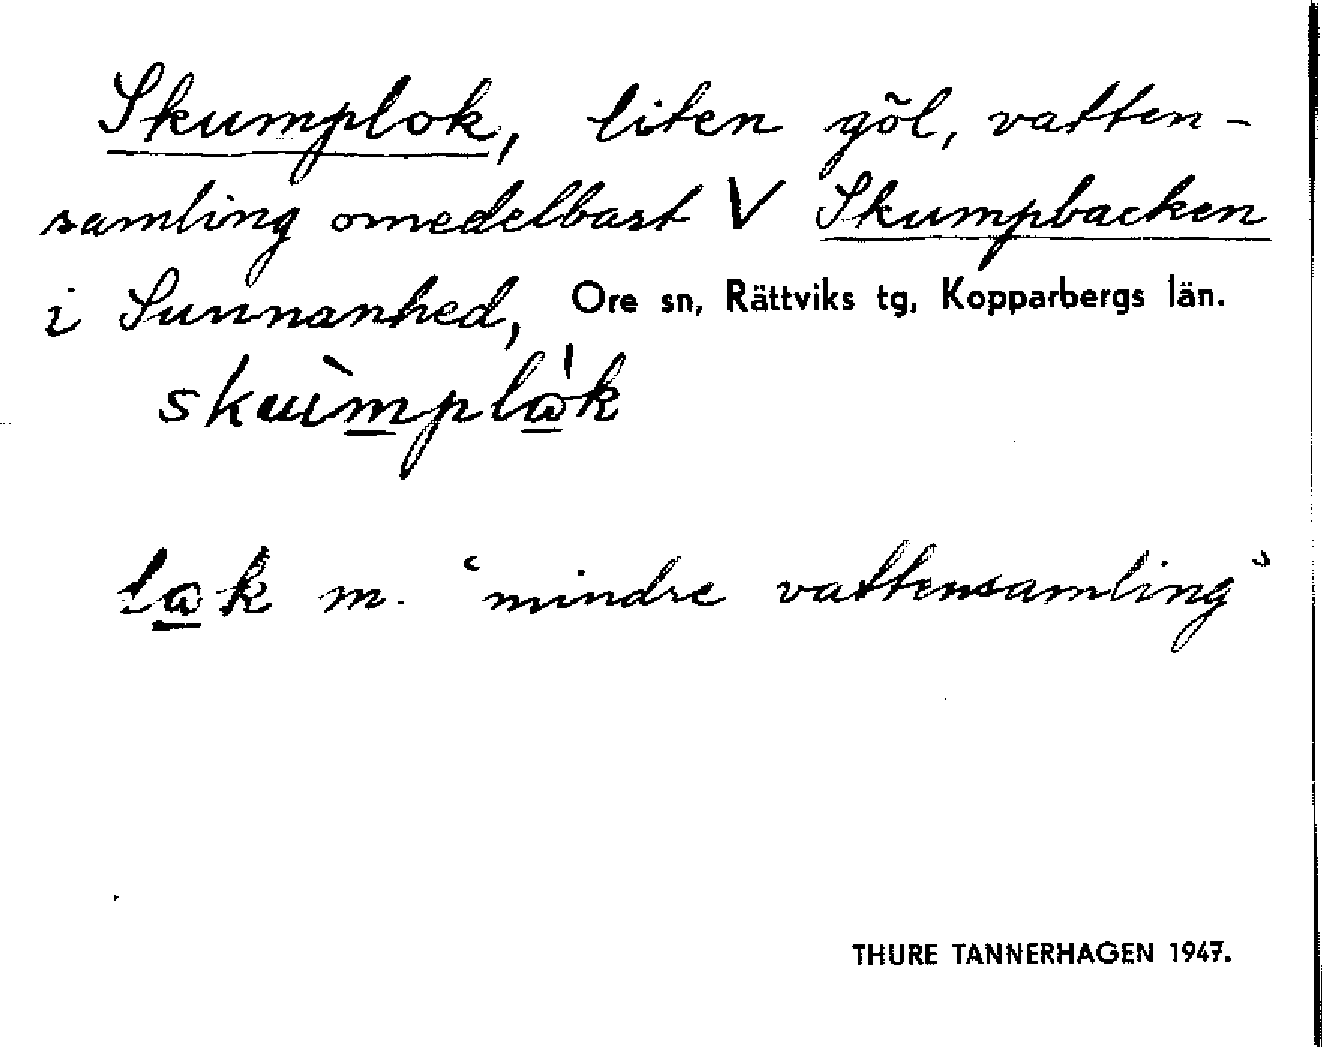 Skumplok, liten göl, vatten-
samling omedelbart V Skumpbacken
i Sunnanhed, Ore sn, Rättviks tg, Kopparbergs län.
lak m. "mindre vattensamling"
THURE TANNERHAGEN 1947.